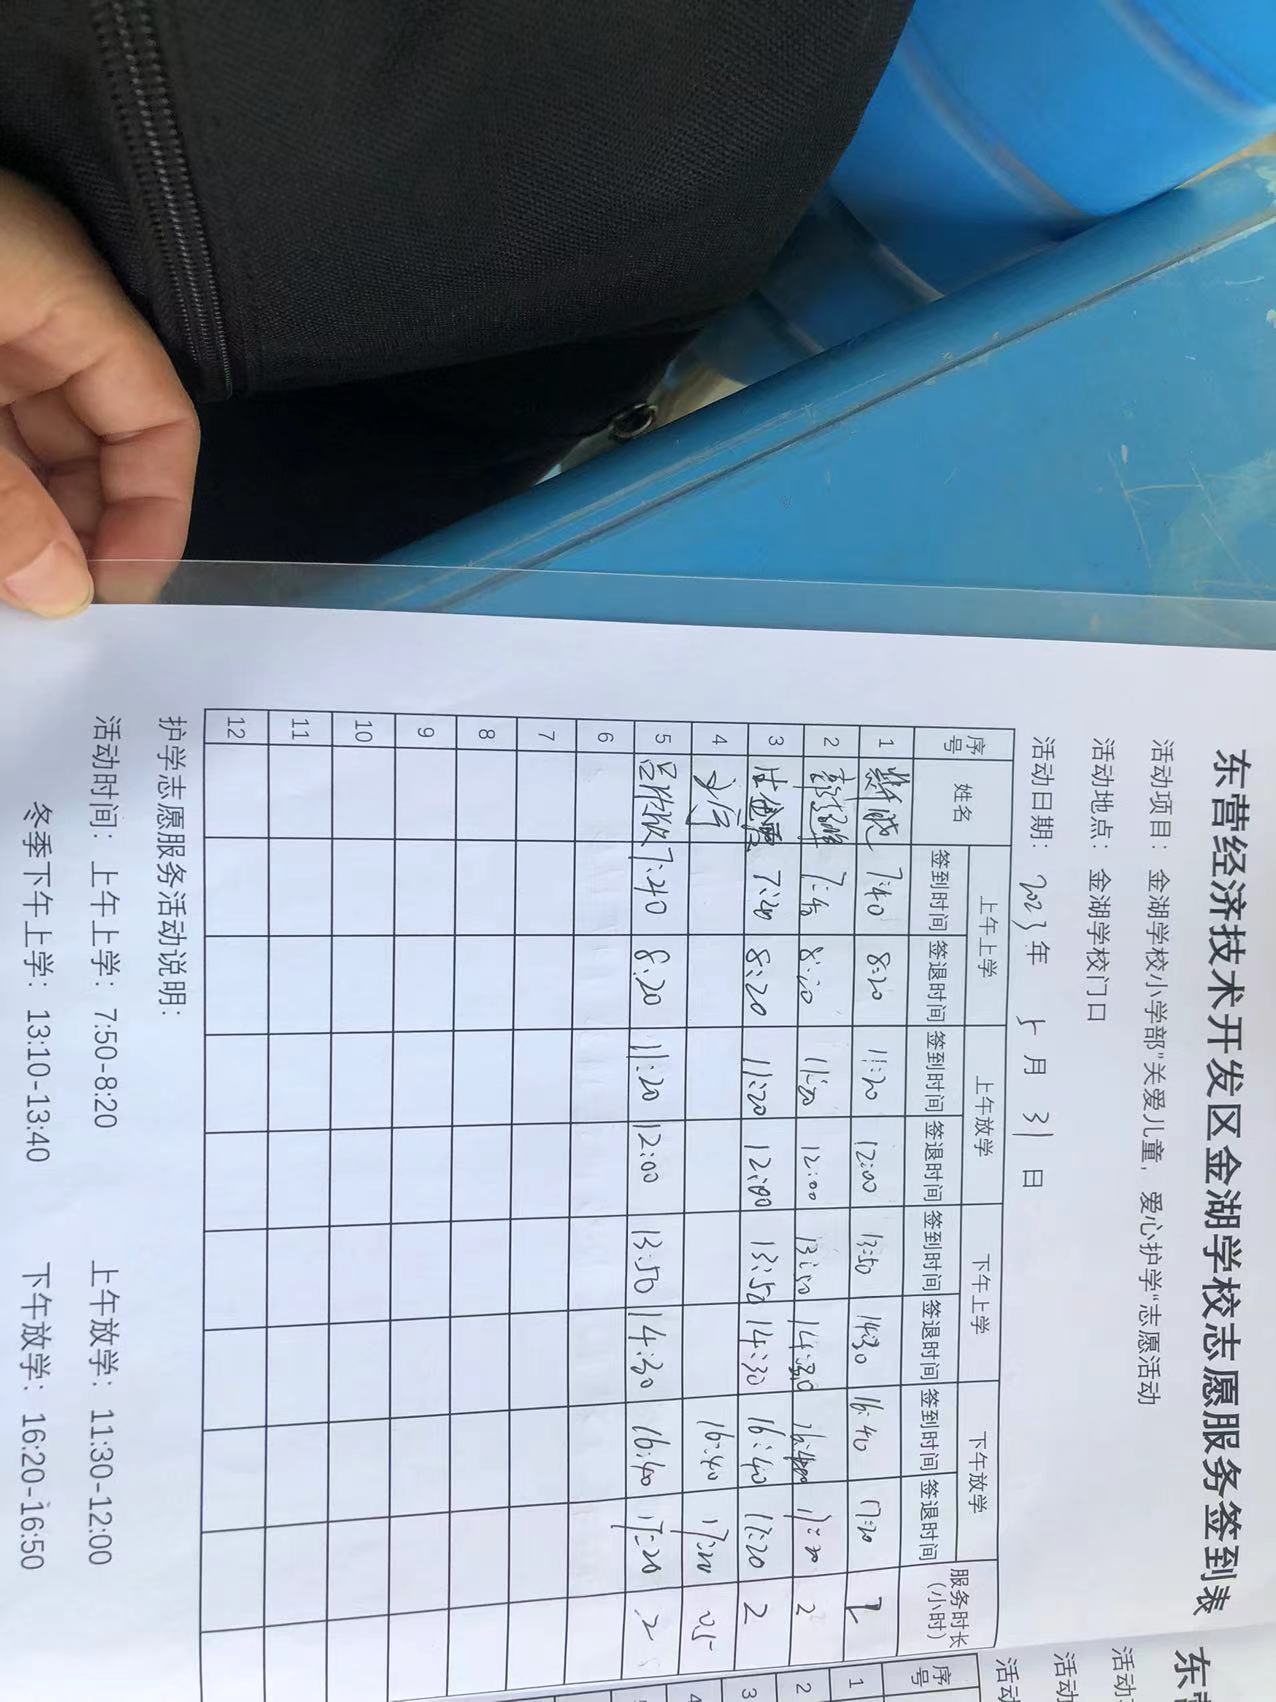 东营经济技术开发区金湖学校志愿服务签到表
活动项目：金湖学校小学部"关爱儿童，爱心护学"志愿活动
活动地点：金湖学校门口
活动日期：2023年 5月 31日
序号 姓名 上午上学 上午放学 下午上学 下午放学 服务时长（小时）
签到时间 签退时间 签到时间 签退时间 签到时间 签退时间 签到时间 签退时间
1 7:40 8:20 11:20 12:00 13:50 14:30 16:40 17:20 2
2 7:40 8:20 11:20 12:00 13:50 14:30 16:40 17:20 2
3 7:40 8:20 11:20 12:00 13:50 14:30 16:40 17:20 2
4 16:40 17:20 0.5
5 7:40 8:20 11:20 12:00 13:50 14:30 16:40 17:20 2
6
7
8
9
10
11
12
护学志愿服务活动说明：
活动时间：上午上学：7:50-8:20 上午放学：11:30-12:00
冬季下午上学：13:10-13:40 下午放学：16:20-16:50
东营
活动
活动
活动
序号
1
2
3
4